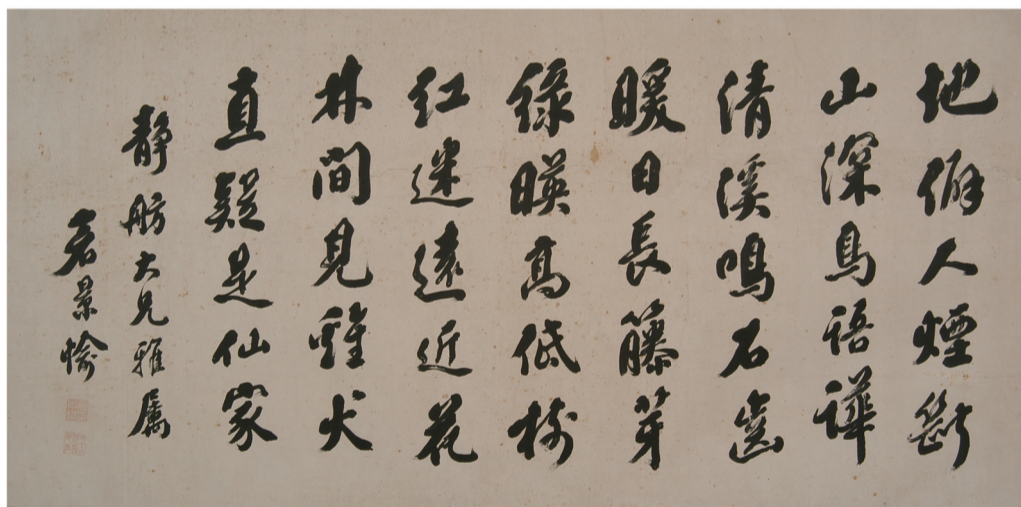 地僻人煙斷
山深鳥語譁
清溪鳴石齒
暖日長藤芽
綠暎高低樹
紅迷遠近花
林間見雞犬
直疑是仙家
靜舫大兄雅屬
景愉